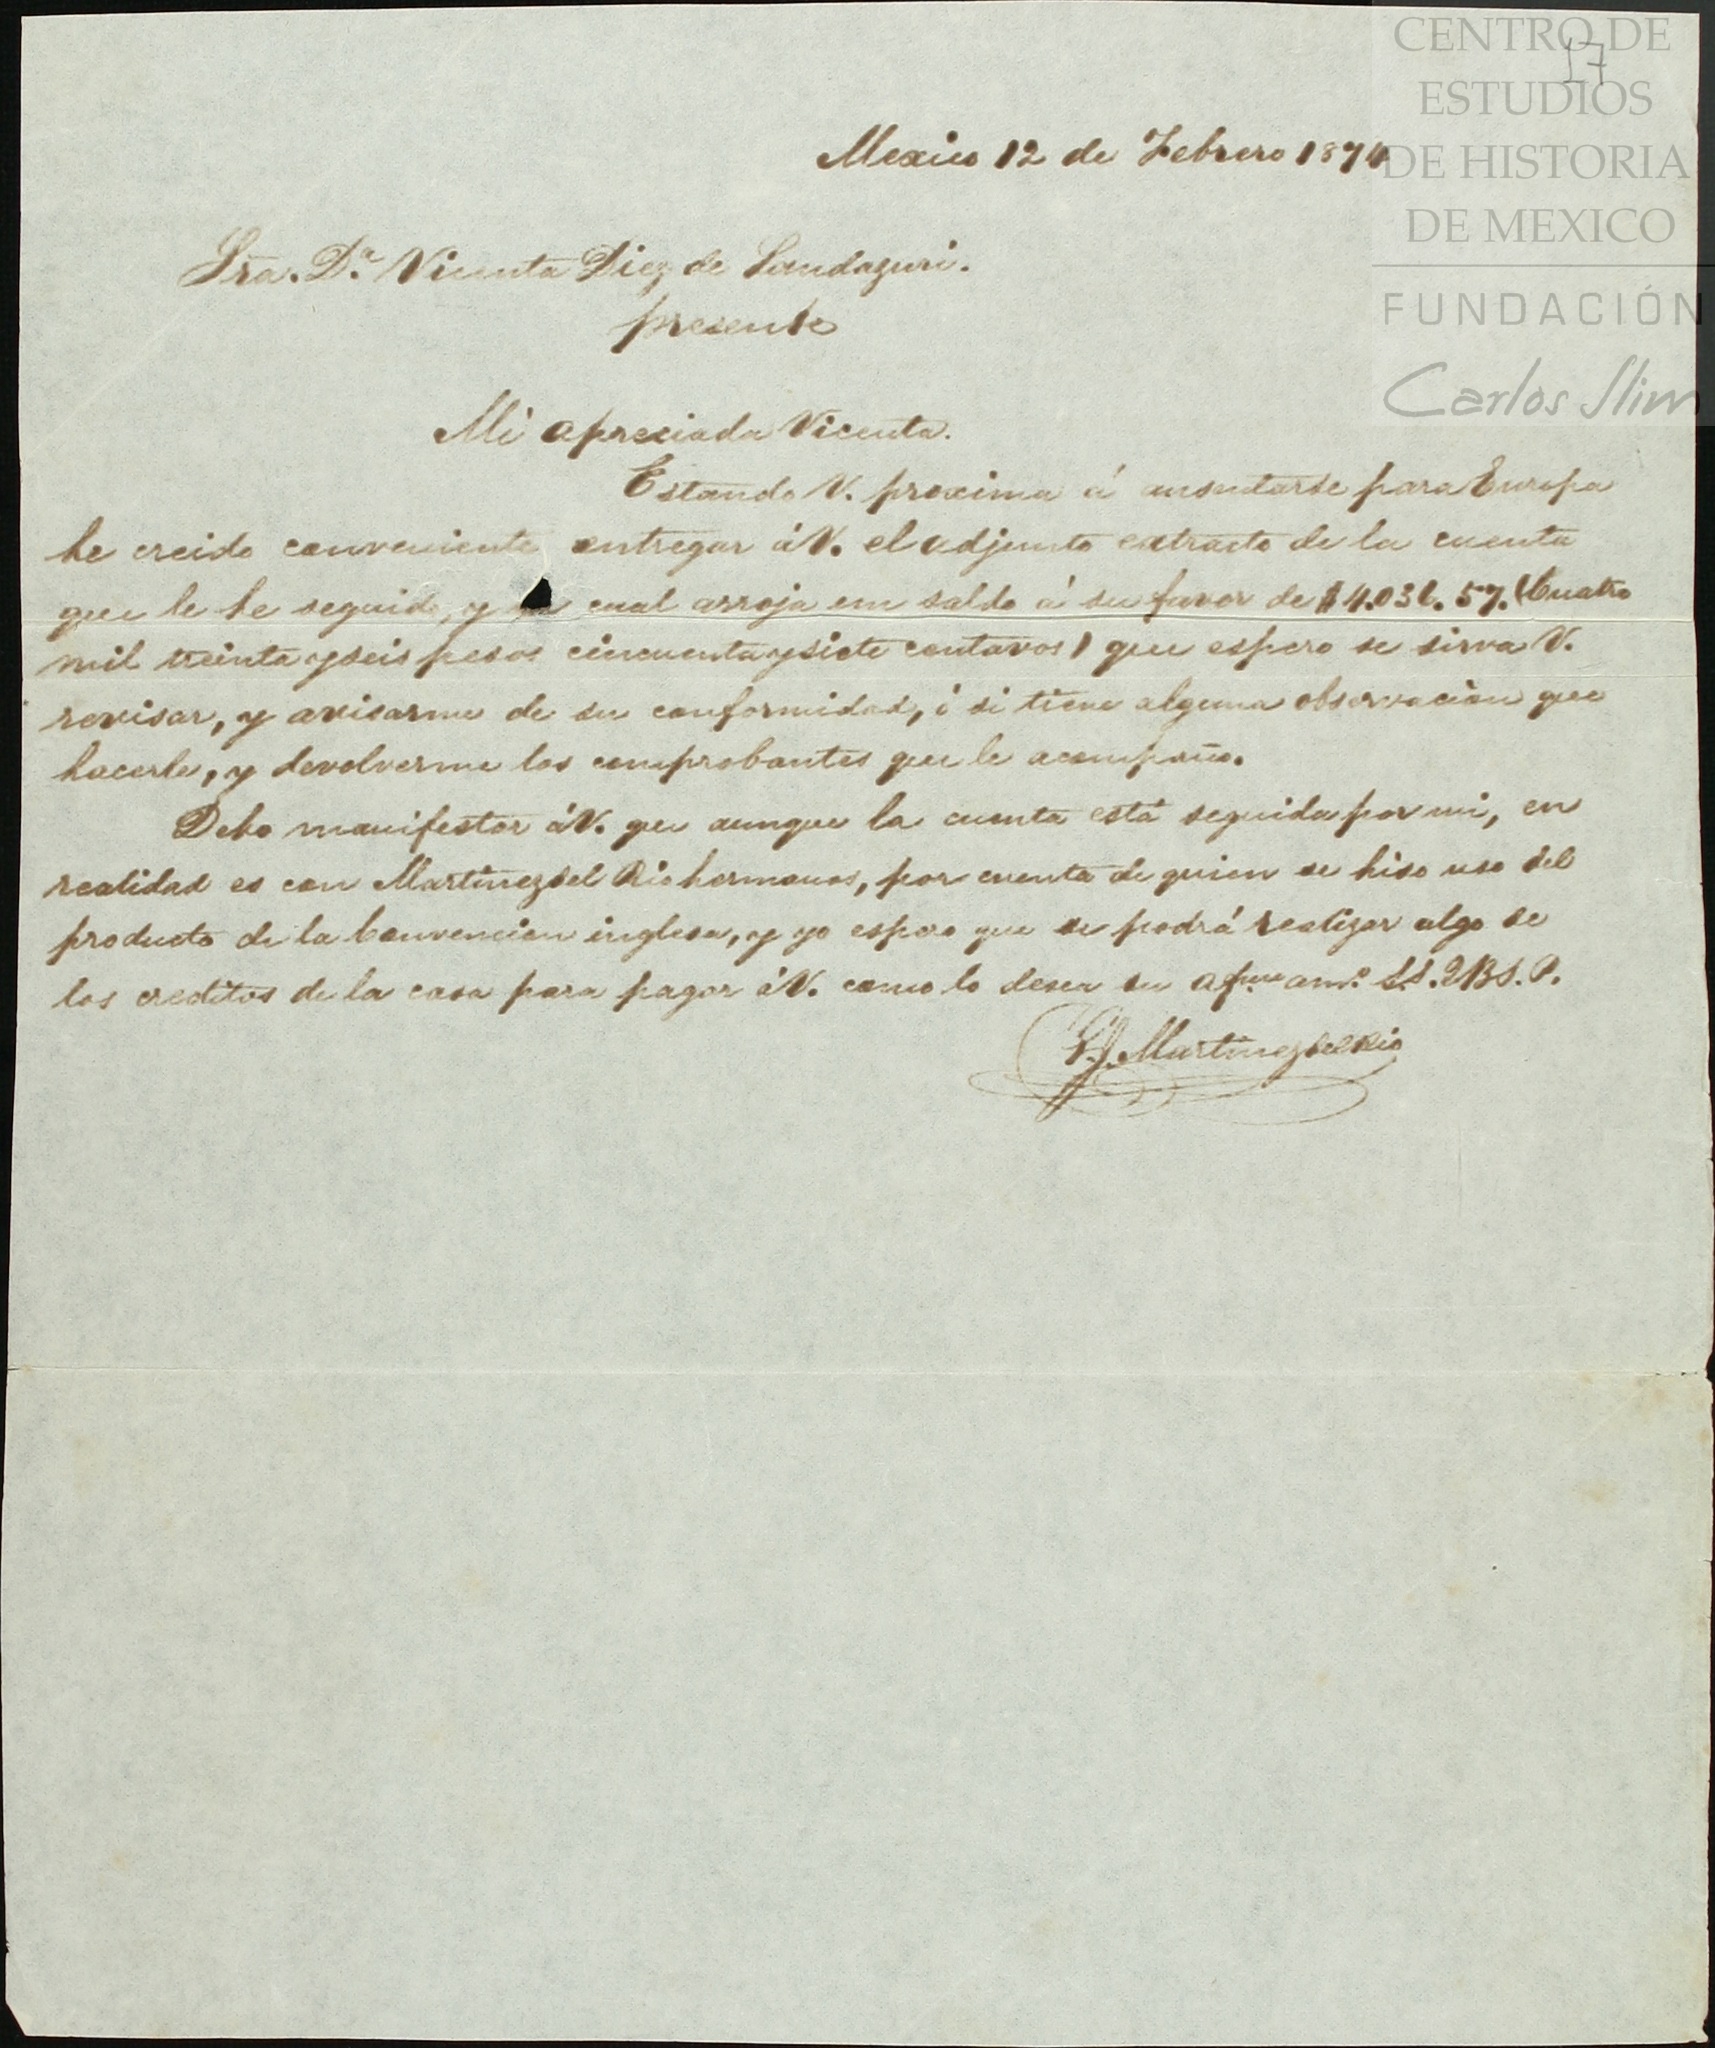 CENTRO DE
ESTUDIOS
DE HISTORIA
DE MEXICO
FUNDACIÓN
Carlos Slim
17
Mexico 12 de Febrero 1874
Sra. Da. Vicenta Diez de Landazuri.
presente
Mi apreciada Vicenta.
Estando V. proxima á ausentarse para Europa
he creido conveniente entregar á V. el adjunto extracto de la cuenta
que le he seguido, y cual arroja un saldo á su favor de $4.036.57. (Cuatro
mil treinta y seis pesos cincuenta y siete centavos) que espero se sirva V.
revisar, y avisarme de su conformidad, ó si tiene alguna observacion que
hacerle, y devolverme los comprobantes que le acompaño.
Debo manifestar á V. que aunque la cuenta está seguida por mi, en
realidad es con Martinez del Rio hermanos, por cuenta de quien se hiso uso del
producto de la Convencion inglesa, y yo espero que se podrá realizar algo de
los creditos de la casa para pagar á V. como lo desea su afmo. amo. S.S. Q B S. P.
Martinez del Rio